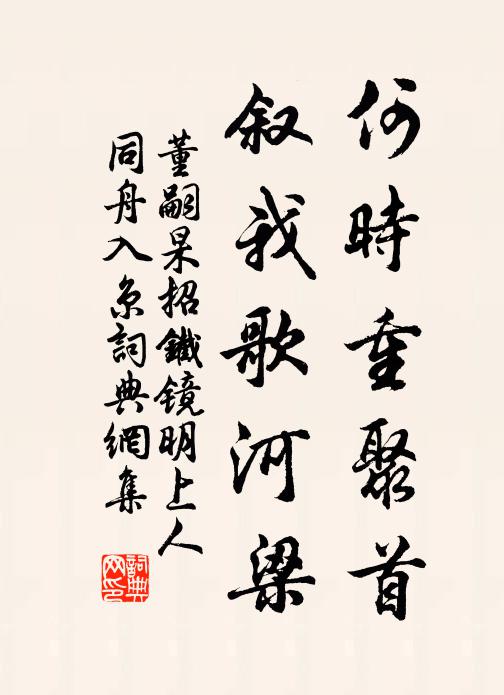 何時重聚首
叙我歌河梁
董嗣杲招鐵鏡明上人
同舟入京詞典網集
詞典网印